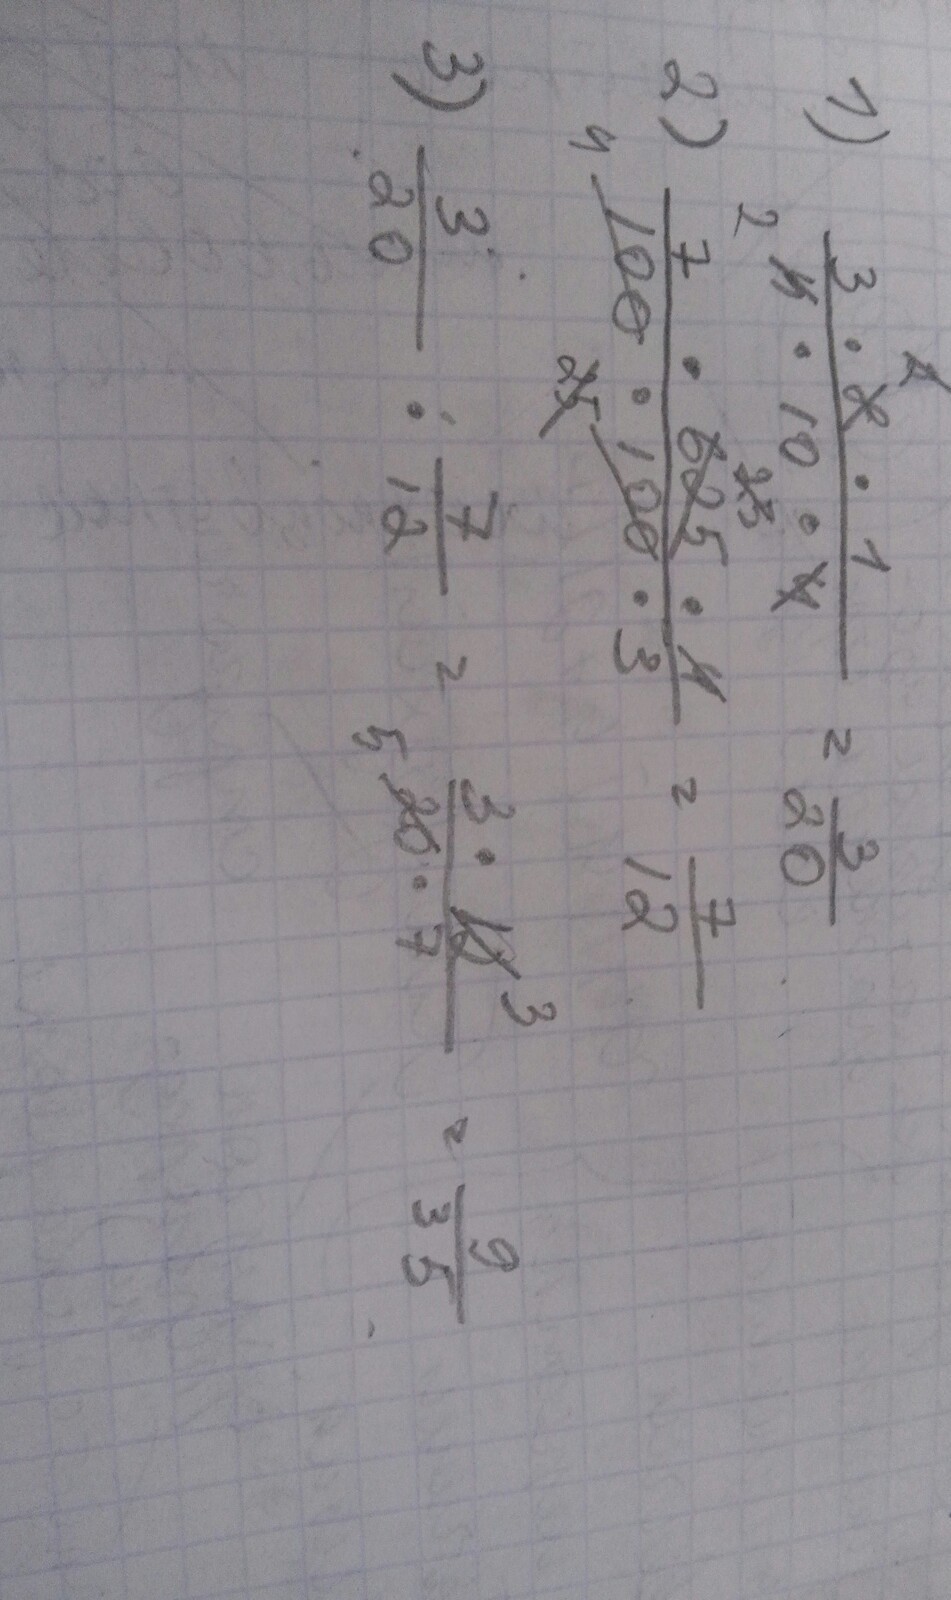 2
1) 3 · 8 · 1 / 4 · 10 · 4 = 3/20
2
25
2) 7 · 625 · 4 / 100 · 100 · 3 = 7/12
4 25
3
3) 3/20 : 7/12 = 3 · 12 / 20 · 7 = 9/35
5